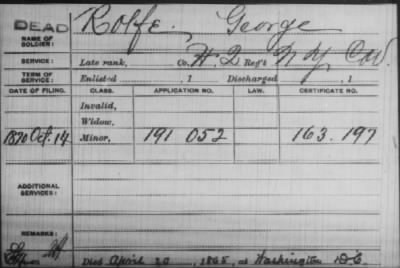 DEAD
NAME OF SOLDIER: Rolfe, George
SERVICE: Late rank, Co. H, 2 Reg't N Y Cav.
TERM OF SERVICE: Enlisted , 1 Discharged , 1
DATE OF FILING. CLASS. APPLICATION NO. LAW. CERTIFICATE NO.
Invalid,
Widow,
1870 Oct. 14 Minor, 191 052 163.197
ADDITIONAL SERVICES:
REMARKS:
Died April 20, 1865, at Washington D.C.